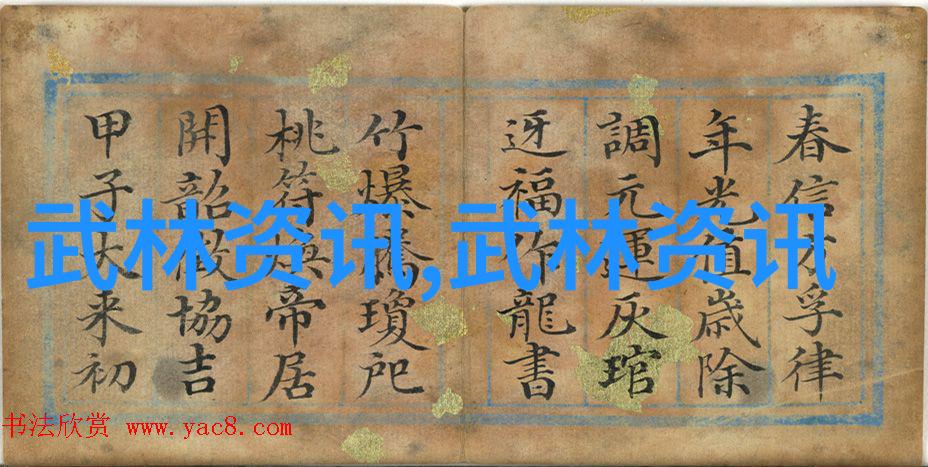 春信方孚律
年光值歲除
調元運灰琯
迓福作龍書
竹爆瓊戺
桃符煥帝居
開韶徵協吉
甲子大来初
武林资讯,武林资讯
书法欣赏 www.yac8.com